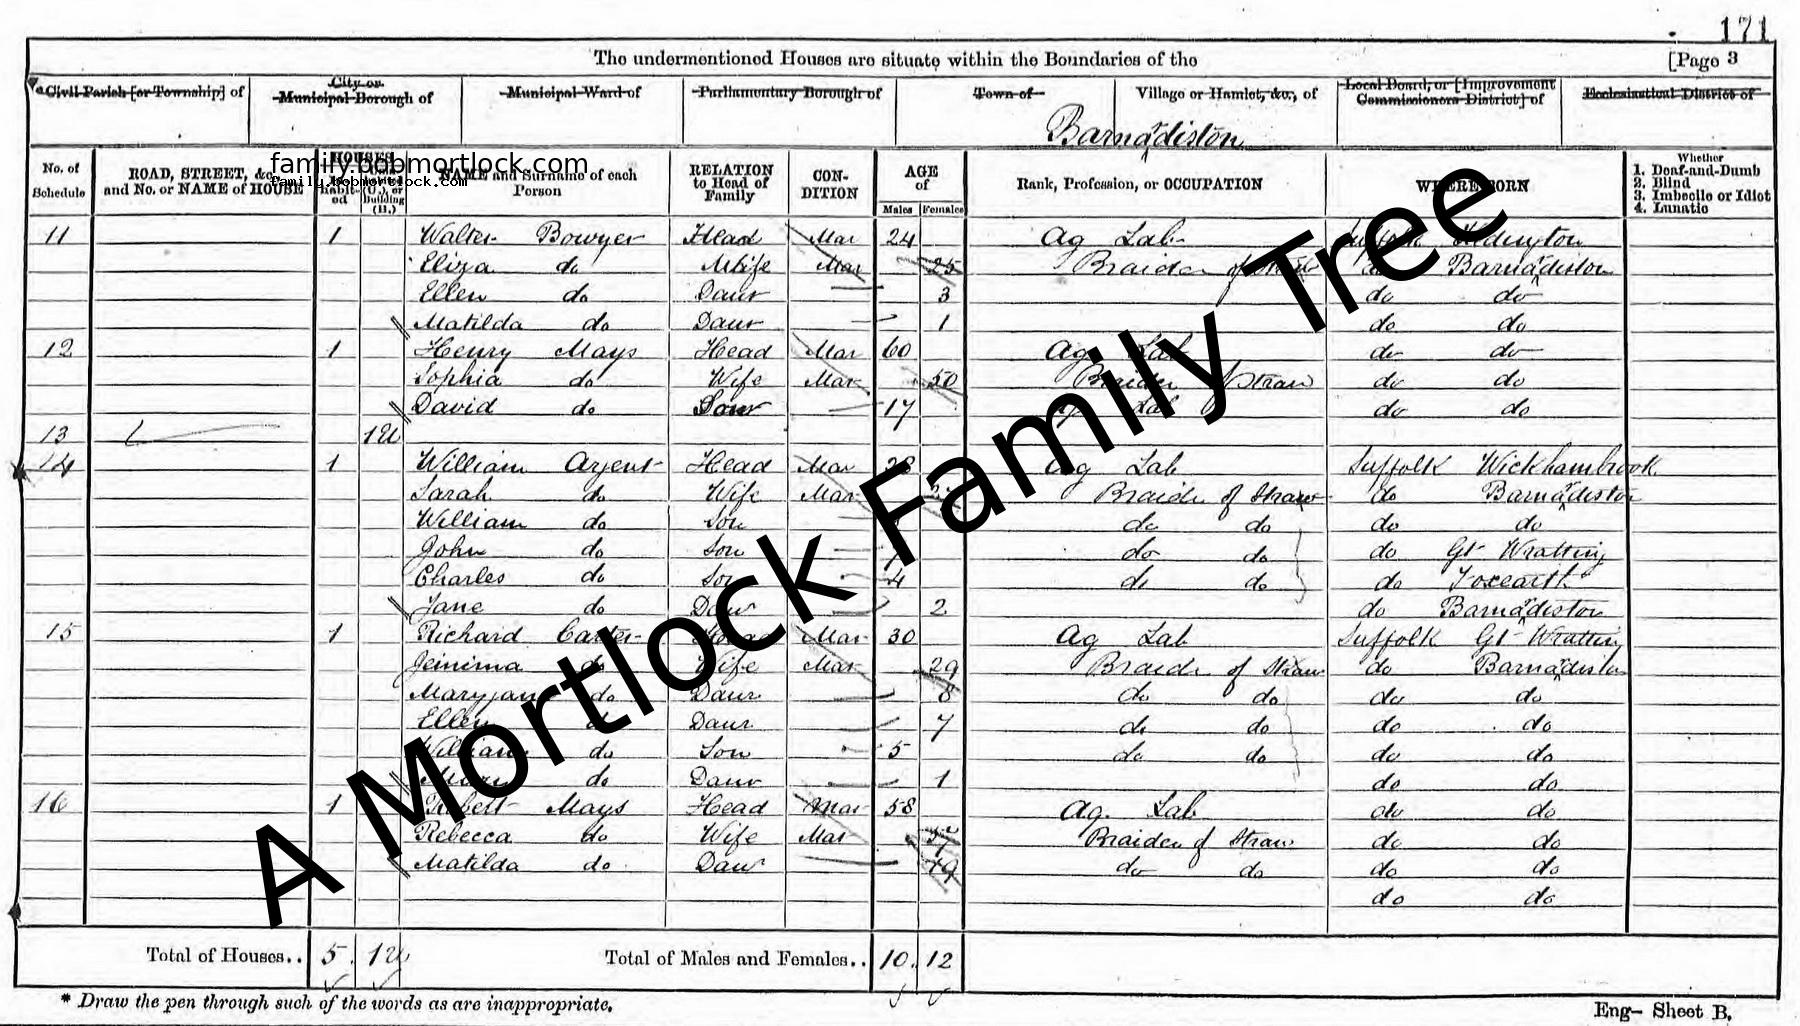 171
The undermentioned Houses are situate within the Boundaries of the [Page 3
Civil Parish [or Township] of City or Municipal Borough of Municipal Ward of Parliamentary Borough of Town of Village or Hamlet, &c., of Local Board, or [Improvement Commissioners District] of Ecclesiastical District of
Barnardiston
family.bobmortlock.com
family.bobmortlock.com
No. of Schedule ROAD, STREET, &c., and No. or NAME of HOUSE HOUSES NAME and Surname of each Person RELATION to Head of Family CON-DITION AGE of Males Females Rank, Profession, or OCCUPATION WHERE BORN Whether 1. Deaf-and-Dumb 2. Blind 3. Imbecile or Idiot 4. Lunatic
11 1 Walter Bowyer Head Mar 24 Ag Lab Suffolk Kedington
Eliza do Wife Mar 25 Braider of Straw do Barnardiston
Ellen do Daur 3 do do
Matilda do Daur 1 do do
12 1 Henry Mays Head Mar 60 Ag Lab do do
Sophia do Wife Mar 50 Braider of Straw do do
David do Son 17 Ag Lab do do
13 1U
14 1 William Argent Head Mar Ag Lab Suffolk Wickhambrook
Sarah do Wife Mar Braider of Straw do Barnardiston
William do Son do do do do
John do Son do do do Gt Wratting
Charles do Son 4 do do do Foxearth
Jane do Daur 2 do Barnardiston
15 1 Richard Carter Head Mar 30 Ag Lab Suffolk Gt Wratting
Jemima do Wife Mar 29 Braider of Straw do Barnardiston
Maryjane do Daur 8 do do do do
Ellen do Daur 7 do do do do
William do Son 5 do do do do
Mary do Daur 1 do do
16 1 Robert Mays Head Mar 58 Ag. Lab do do
Rebecca do Wife Mar Braider of Straw do do
Matilda do Daur 19 do do do do
do do
Total of Houses.. 5 1U Total of Males and Females.. 10 12
* Draw the pen through such of the words as are inappropriate.
Eng- Sheet B.
A Mortlock Family Tree